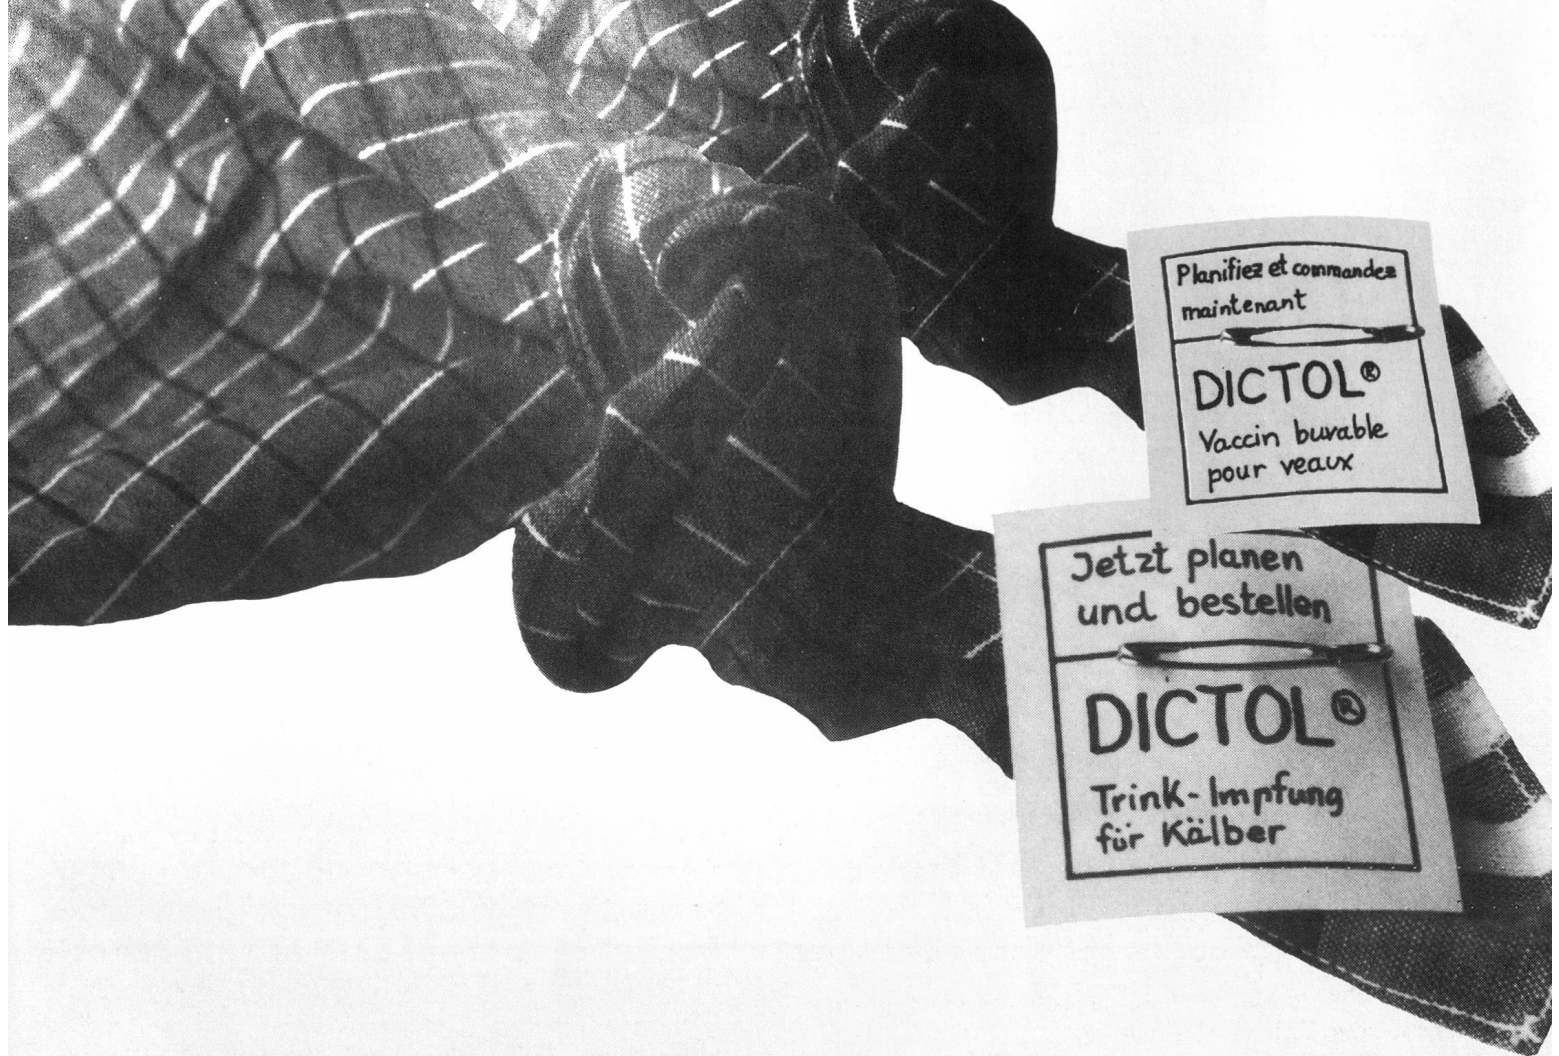 Planifiez et commandez
maintenant
DICTOL®
Vaccin buvable
pour veaux
Jetzt planen
und bestellen
DICTOL®
Trink-Impfung
für Kälber